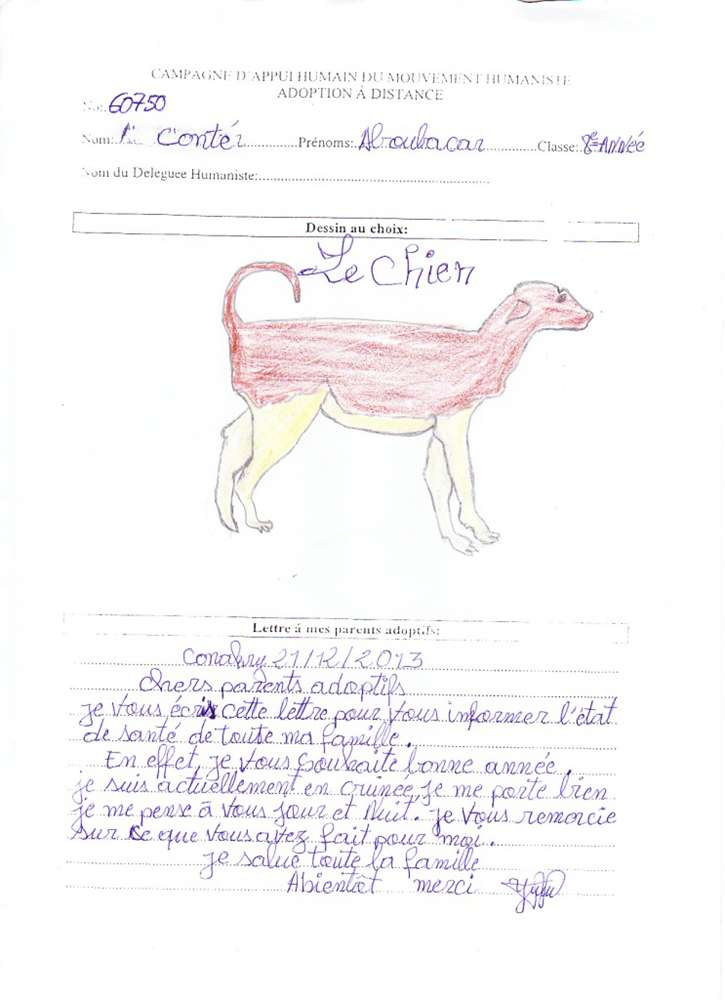 CAMPAGNE D'APPUI HUMAIN DU MOUVEMENT HUMANISTE
ADOPTION À DISTANCE
No: 60750
Nom: Contér Prénoms: Aboubacar Classe: 8e Année
Nom du Deleguee Humaniste:
Dessin au choix:
Le Chien
Lettre á mes parents adoptifs:
Conakry 21/12/2013
chers parents adoptifs
je vous écris cette lettre pour vous informer l'état
de santé de toute ma famille.
En effet, je vous souhaite bonne année.
je suis actuellement en Gruinée, je me porte bien
je me pense à vous jour et Nuit. je vous remercie
sur ce que vous avez fait pour moi.
je salue toute la famille
Abientôt merci